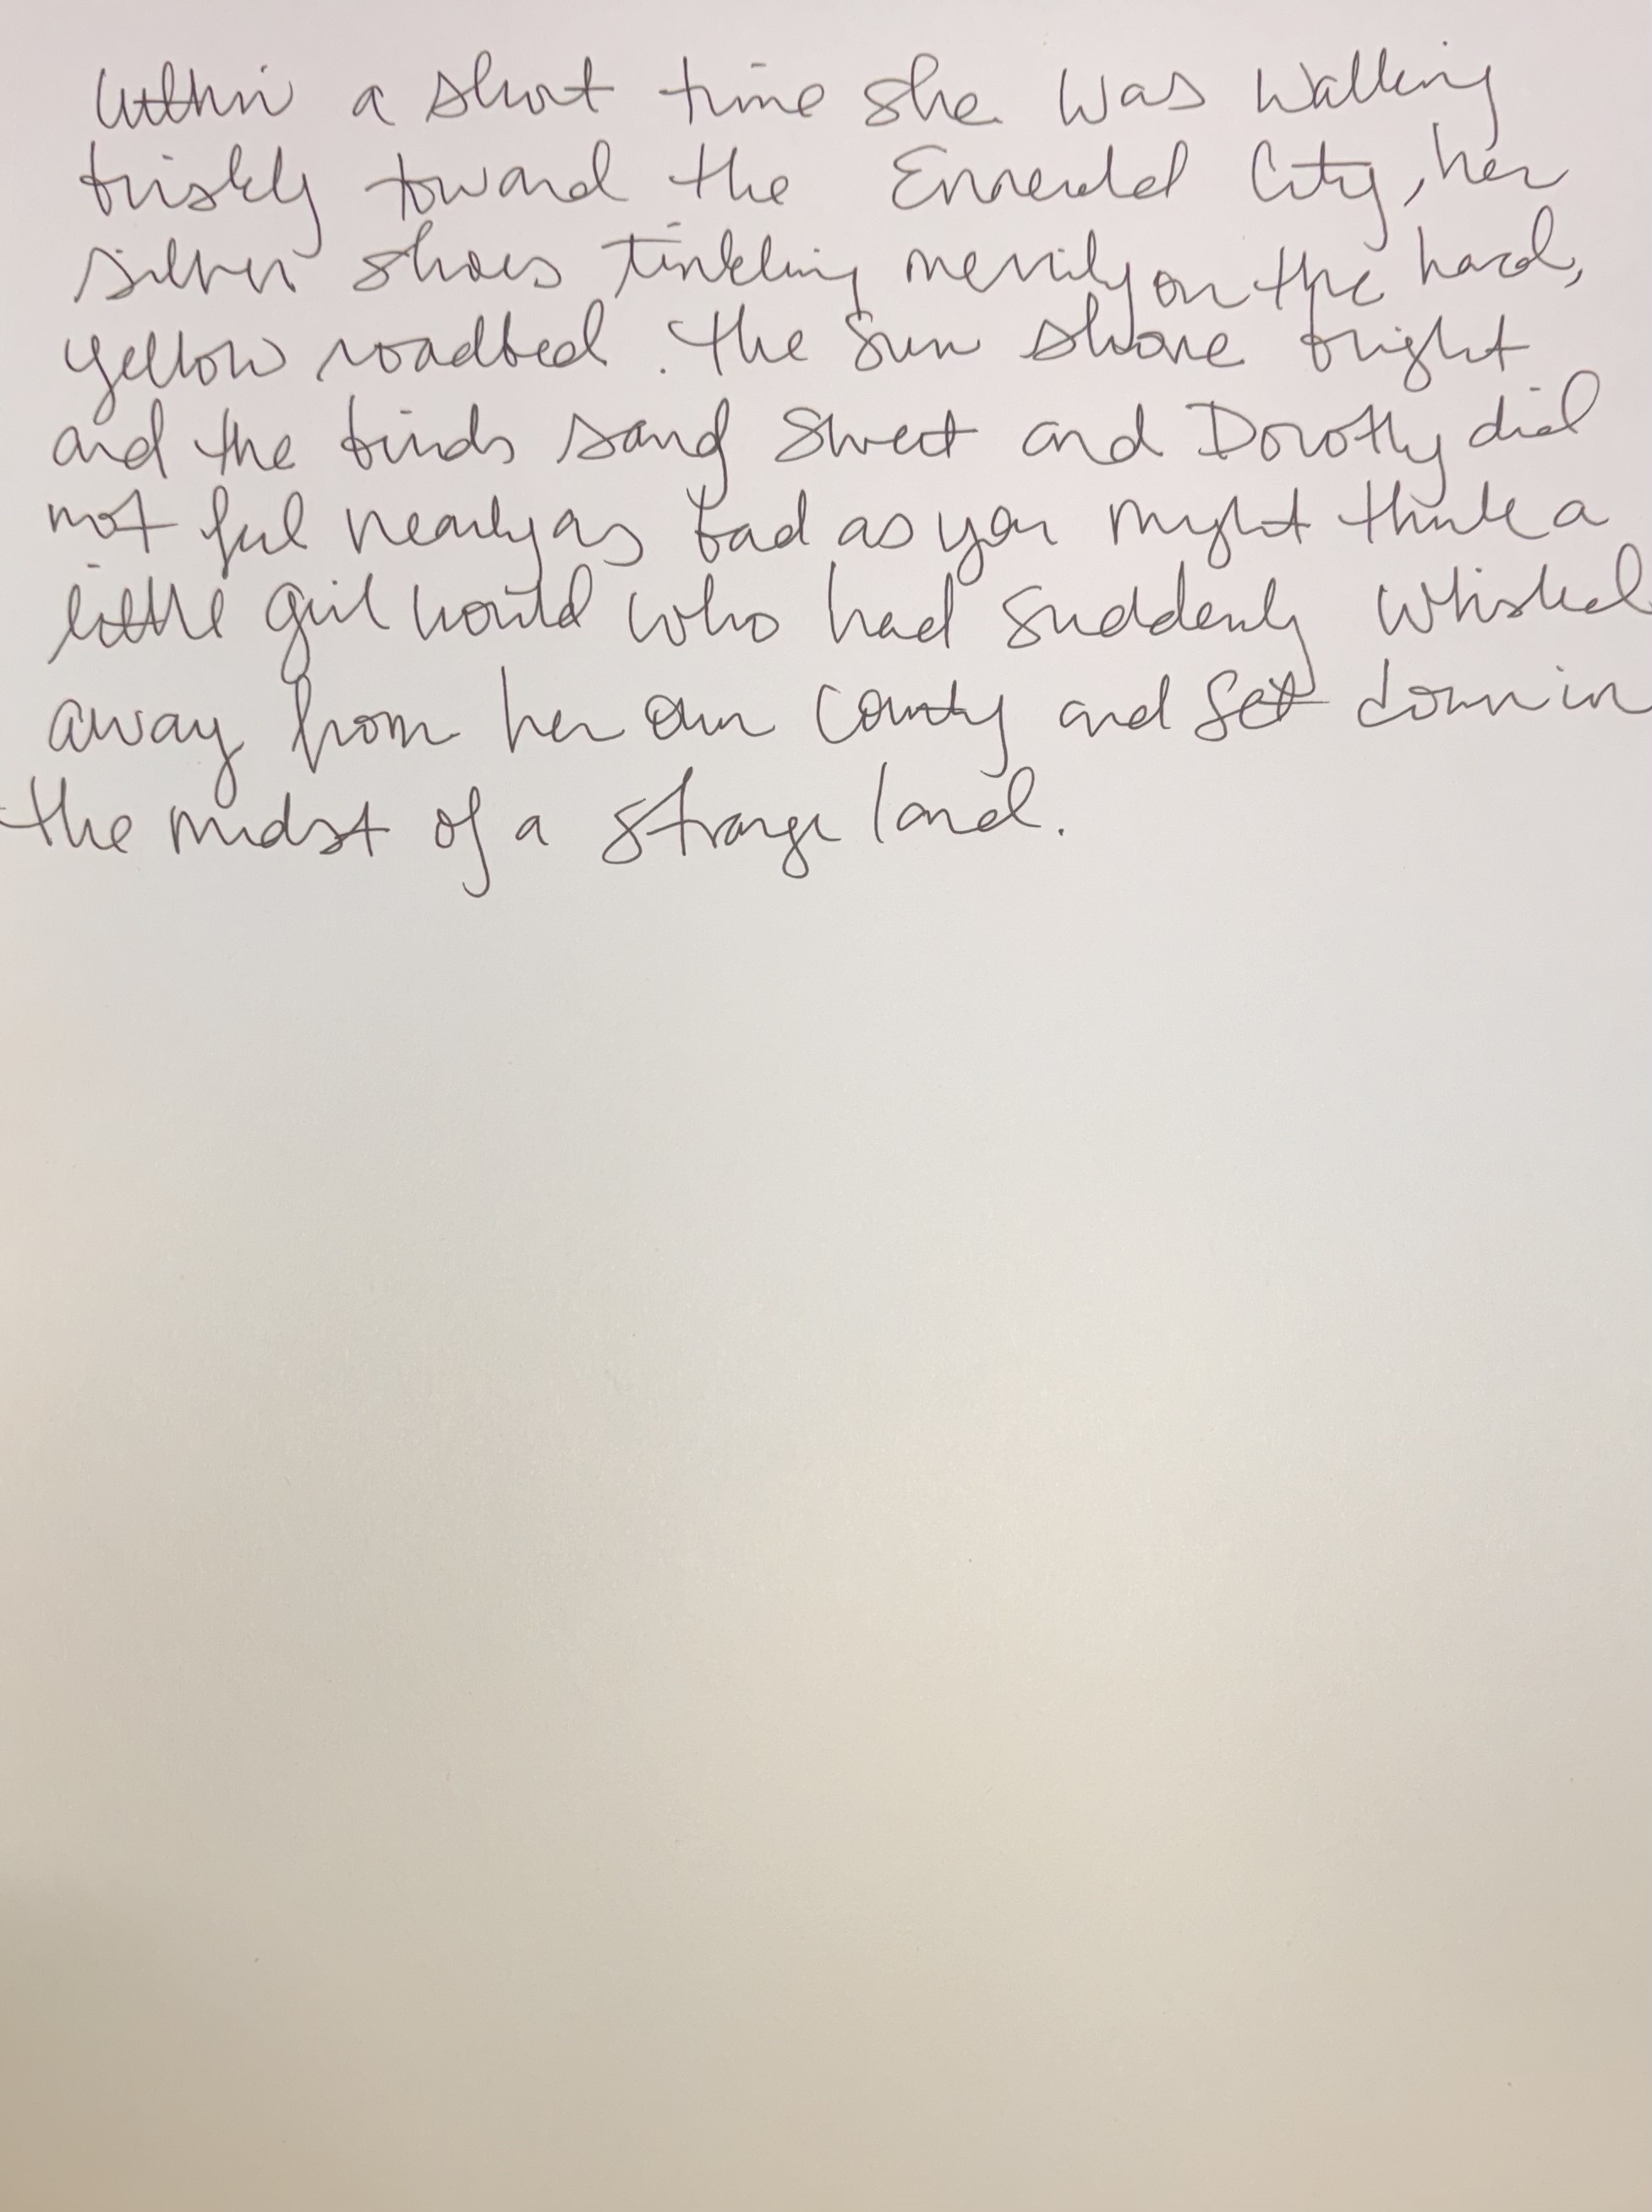 Within a short time she was walking
briskly toward the Emerald City, her
silver shoes tinkling merrily on the hard,
yellow roadbed. The sun shone bright
and the birds sang sweet and Dorothy did
not feel nearly as bad as you might think a
little girl would who had suddenly whisked
away from her own country and set down in
the midst of a strange land.